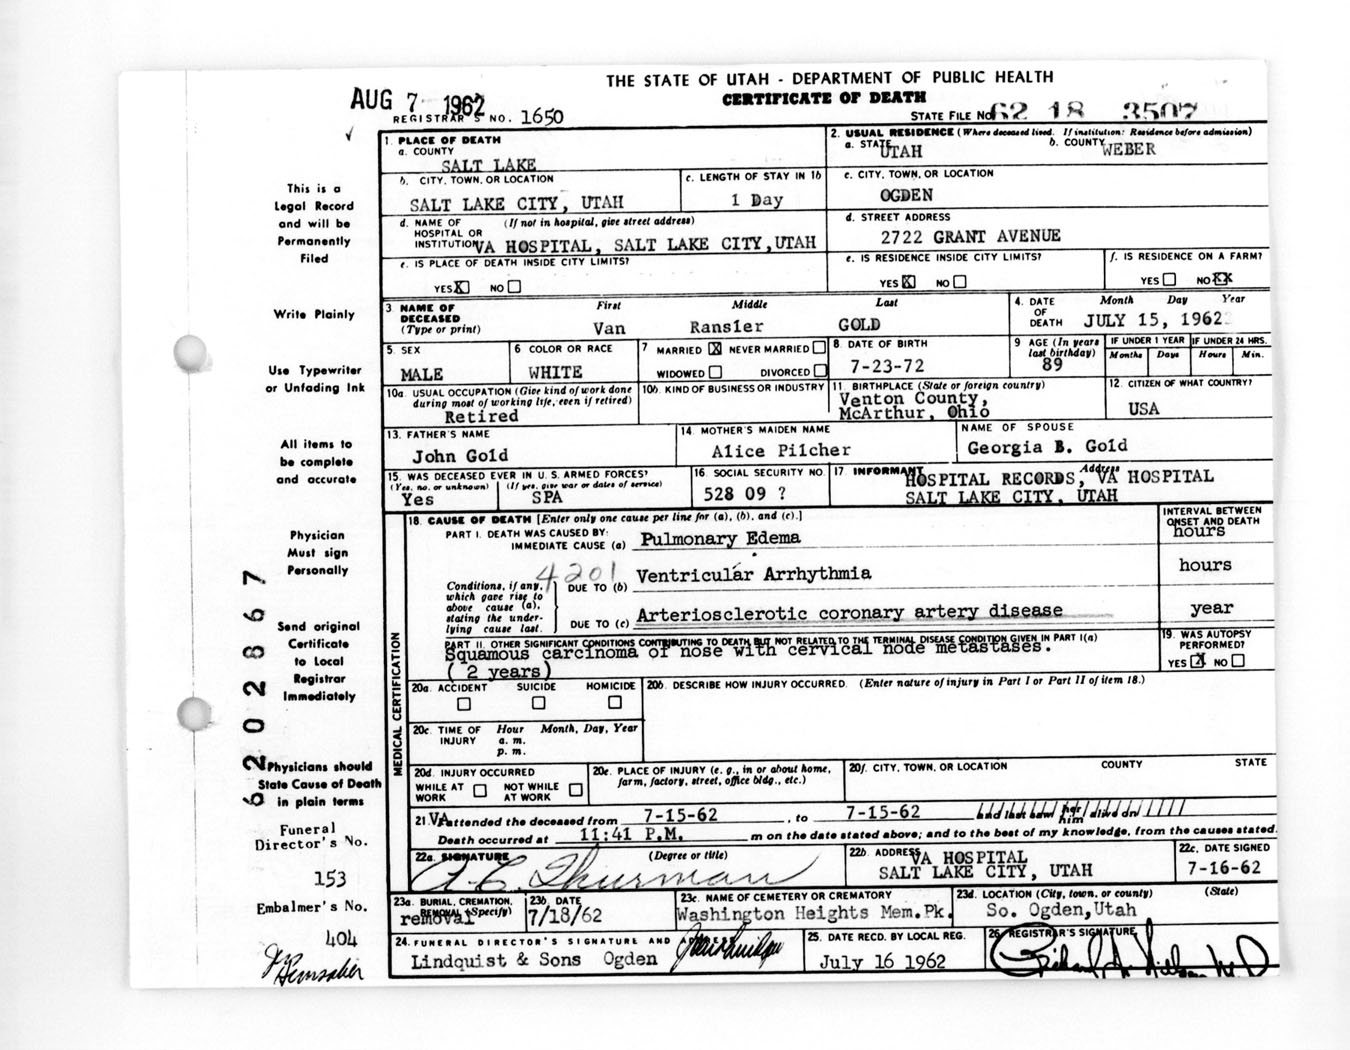 THE STATE OF UTAH - DEPARTMENT OF PUBLIC HEALTH
CERTIFICATE OF DEATH
AUG 7 1962
REGISTRAR'S NO. 1650
STATE FILE No. 62 18 3507
This is a
Legal Record
and will be
Permanently
Filed
Write Plainly
Use Typewriter
or Unfading Ink
All items to
be complete
and accurate
Physician
Must sign
Personally
Send original
Certificate
to Local
Registrar
Immediately
Physicians should
State Cause of Death
in plain terms
Funeral
Director's No.
153
Embalmer's No.
404
6202867
1. PLACE OF DEATH
a. COUNTY
SALT LAKE
2. USUAL RESIDENCE (Where deceased lived. If institution: Residence before admission)
a. STATE UTAH b. COUNTY WEBER
b. CITY, TOWN, OR LOCATION
SALT LAKE CITY, UTAH
c. LENGTH OF STAY IN 1b
1 Day
c. CITY, TOWN, OR LOCATION
OGDEN
d. NAME OF (If not in hospital, give street address)
HOSPITAL OR
INSTITUTION VA HOSPITAL, SALT LAKE CITY, UTAH
d. STREET ADDRESS
2722 GRANT AVENUE
e. IS PLACE OF DEATH INSIDE CITY LIMITS?
YES X NO
e. IS RESIDENCE INSIDE CITY LIMITS?
YES X NO
f. IS RESIDENCE ON A FARM?
YES NO XX
3 NAME OF
DECEASED
(Type or print)
First Middle Last
Van Ransler GOLD
4. DATE
OF
DEATH
Month Day Year
JULY 15, 1962
5. SEX
MALE
6 COLOR OR RACE
WHITE
7 MARRIED X NEVER MARRIED
WIDOWED DIVORCED
8 DATE OF BIRTH
7-23-72
9 AGE (In years
last birthday)
89
IF UNDER 1 YEAR IF UNDER 24 HRS.
Months Days Hours Min.
10a. USUAL OCCUPATION (Give kind of work done
during most of working life, even if retired)
Retired
10b. KIND OF BUSINESS OR INDUSTRY
11. BIRTHPLACE (State or foreign country)
Venton County,
McArthur, Ohio
12. CITIZEN OF WHAT COUNTRY?
USA
13. FATHER'S NAME
John Gold
14. MOTHER'S MAIDEN NAME
Alice Pilcher
NAME OF SPOUSE
Georgia B. Gold
15. WAS DECEASED EVER IN U. S. ARMED FORCES?
(Yes, no, or unknown) (If yes, give war or dates of service)
Yes SPA
16. SOCIAL SECURITY NO.
528 09 ?
17. INFORMANT Address
HOSPITAL RECORDS, VA HOSPITAL
SALT LAKE CITY, UTAH
MEDICAL CERTIFICATION
18. CAUSE OF DEATH [Enter only one cause per line for (a), (b), and (c).]
INTERVAL BETWEEN
ONSET AND DEATH
PART I. DEATH WAS CAUSED BY:
IMMEDIATE CAUSE (a) Pulmonary Edema
hours
4201
Conditions, if any,
which gave rise to
above cause (a),
stating the under-
lying cause last.
DUE TO (b) Ventricular Arrhythmia
hours
DUE TO (c) Arteriosclerotic coronary artery disease
year
PART II. OTHER SIGNIFICANT CONDITIONS CONTRIBUTING TO DEATH BUT NOT RELATED TO THE TERMINAL DISEASE CONDITION GIVEN IN PART I(a)
Squamous carcinoma of nose with cervical node metastases.
( 2 years)
19. WAS AUTOPSY
PERFORMED?
YES X NO
20a. ACCIDENT SUICIDE HOMICIDE
20b. DESCRIBE HOW INJURY OCCURRED. (Enter nature of injury in Part I or Part II of item 18.)
20c. TIME OF
INJURY
Hour Month, Day, Year
a. m.
p. m.
20d. INJURY OCCURRED
WHILE AT
WORK
NOT WHILE
AT WORK
20e. PLACE OF INJURY (e. g., in or about home,
farm, factory, street, office bldg., etc.)
20f. CITY, TOWN, OR LOCATION COUNTY STATE
21. VA attended the deceased from 7-15-62, to 7-15-62 and last saw her/him alive on
Death occurred at 11:41 P.M. m on the date stated above; and to the best of my knowledge, from the causes stated.
22a. SIGNATURE (Degree or title)
A. C. Thurman
22b. ADDRESS VA HOSPITAL
SALT LAKE CITY, UTAH
22c. DATE SIGNED
7-16-62
23a. BURIAL, CREMATION,
REMOVAL (Specify)
removal
23b. DATE
7/18/62
23c. NAME OF CEMETERY OR CREMATORY
Washington Heights Mem. Pk.
23d. LOCATION (City, town, or county) (State)
So. Ogden, Utah
24. FUNERAL DIRECTOR'S SIGNATURE AND ADDRESS
Lindquist & Sons Ogden
25. DATE RECD. BY LOCAL REG.
July 16 1962
26. REGISTRAR'S SIGNATURE